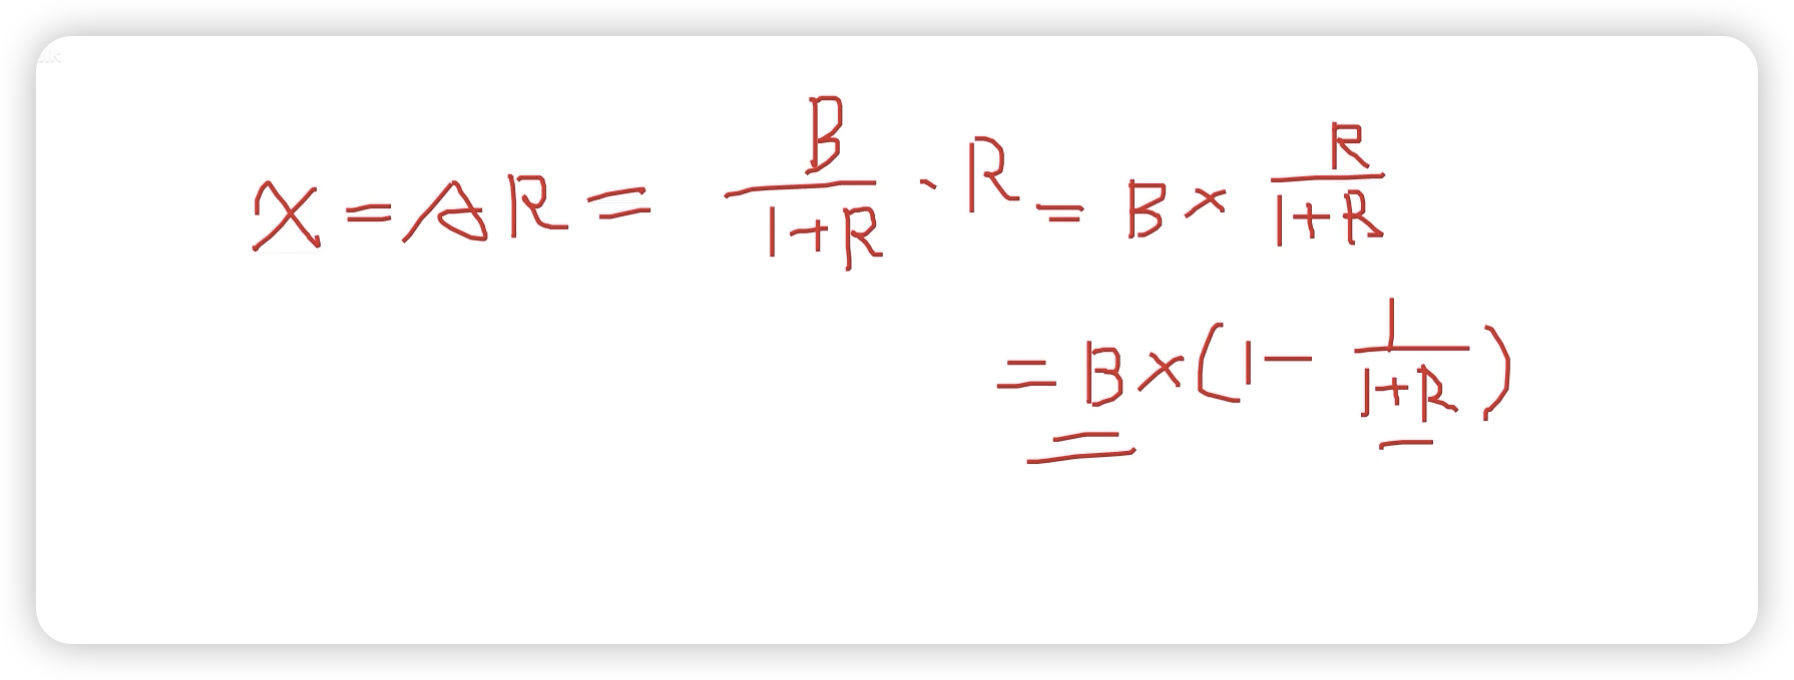 X = AR = B/(1+R) · R = B × R/(1+R)
= B × (1 - 1/(1+R))